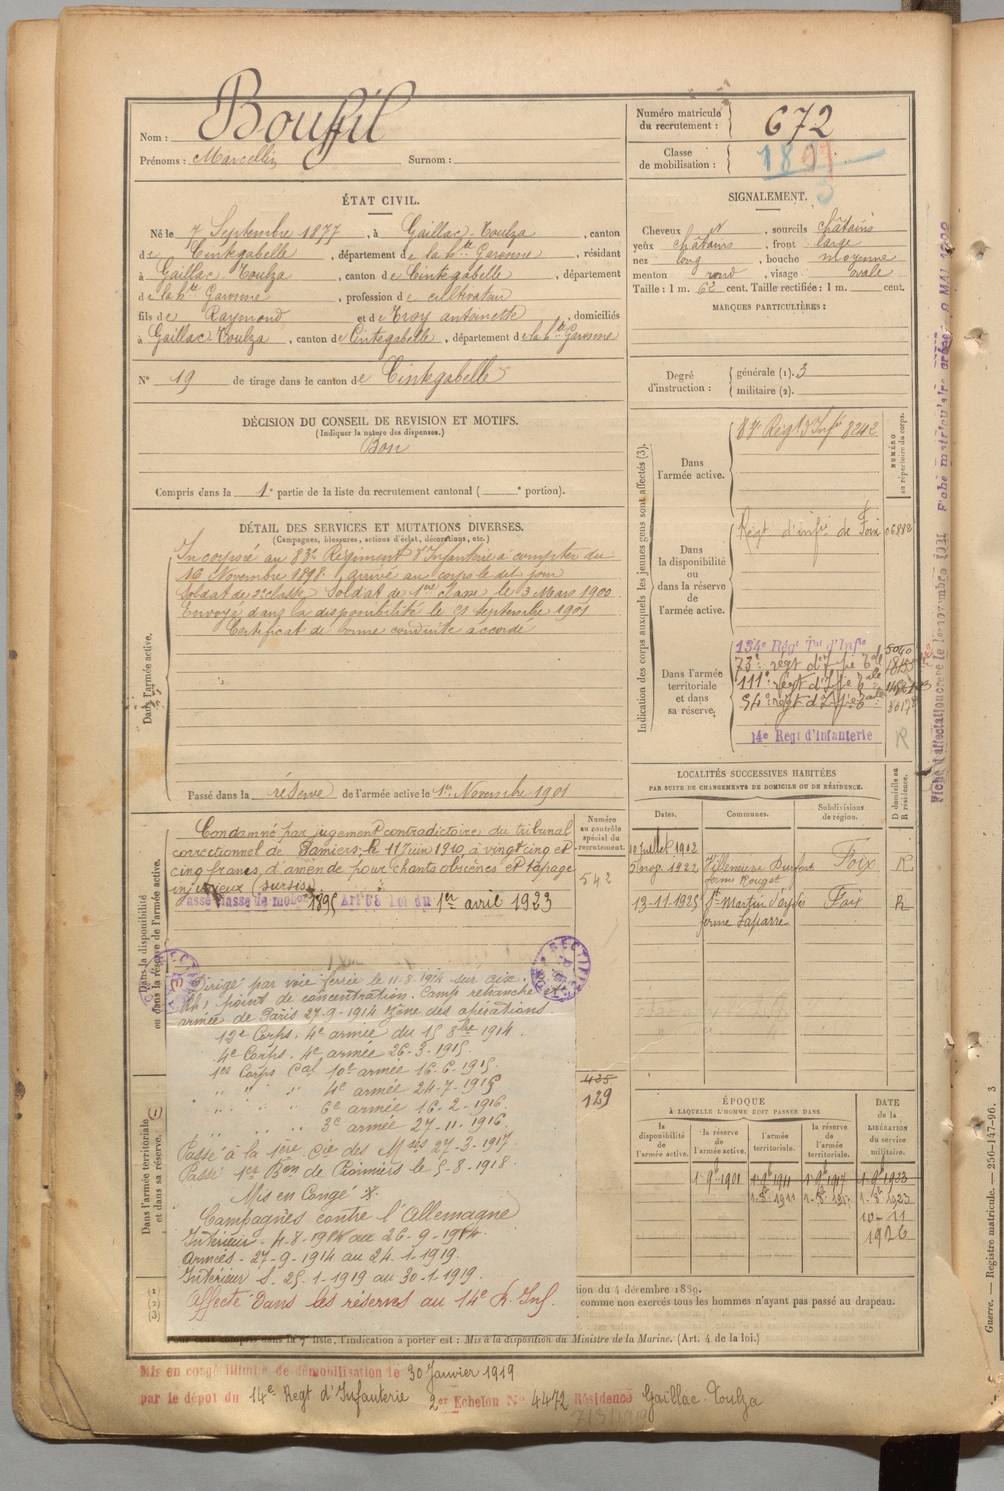 Nom : Boufil
Prénoms : Marcellin Surnom :
Numéro matricule du recrutement : 672
Classe de mobilisation : 18
ÉTAT CIVIL.
Né le 7 Septembre 1877, à Gaillac-Toulza, canton
de Cintegabelle, département de la hte Garonne, résidant
à Gaillac-Toulza, canton de Cintegabelle, département
de la hte Garonne, profession de cultivateur
fils de Raymond et de Troy antoinette, domiciliés
à Gaillac-Toulza, canton de Cintegabelle, département de la hte Garonne
N° 19 de tirage dans le canton de Cintegabelle
SIGNALEMENT.
Cheveux N, sourcils châtains
yeux châtains, front large
nez long, bouche moyenne
menton rond, visage ovale
Taille : 1 m. 62 cent. Taille rectifiée : 1 m. cent.
MARQUES PARTICULIÈRES :
Degré d'instruction : générale (1). 3
militaire (2).
DÉCISION DU CONSEIL DE REVISION ET MOTIFS.
(Indiquer la nature des dispenses.)
Bon
Compris dans la 1e partie de la liste du recrutement cantonal ( e portion).
DÉTAIL DES SERVICES ET MUTATIONS DIVERSES.
(Campagnes, blessures, actions d'éclat, décorations, etc.)
Dans l'armée active.
Incorporé au 83e Régiment d'Infanterie à compter du
16 Novembre 1898, arrivé au corps le dit jour
Soldat de 2e classe. Soldat de 1ere classe le 3 Mars 1900.
Envoyé dans la disponibilité le 21 septembre 1901
Certificat de bonne conduite accordé
Passé dans la réserve de l'armée active le 1er Novembre 1901
Indication des corps auxquels les jeunes gens sont affectés (3).
NUMÉRO au répertoire du corps.
Dans l'armée active.
83e Régt d'Infie 8242
Dans la disponibilité ou dans la réserve de l'armée active.
Régt d'infie de Foix
Dans l'armée territoriale et dans sa réserve.
134e Régt Tal d'Infie
73e régt d'Ifie Tale
111e régt d'Ifie Tale
54e régt d'Ifie
14e Regt d'Infanterie
R
LOCALITÉS SUCCESSIVES HABITÉES
PAR SUITE DE CHANGEMENTS DE DOMICILE OU DE RÉSIDENCE.
Dates. Communes. Subdivisions de région. D domicile ou R résidence.
10 Juillet 1912
1922 Villeneuve Durfort Foix R
13-11-1925 St Martin d'oydes Foix R
ferme Laparre
Dans la disponibilité ou dans la réserve de l'armée active.
Numéro au contrôle spécial du recrutement.
542
Condamné par jugement contradictoire du tribunal
correctionnel de Pamiers, le 11 Juin 1910, à vingt cinq et
cinq francs, d'amende pour chants obscènes et tapage
injurieux (sursis)
Passé classe de mobon 1895 Art 58 Loi du 1er avril 1923
Dirigé par voie ferrée le 11-8-1914 sur
point de concentration. Camp retranché et
armée de Paris 27-9-1914 zône des opérations.
12e Corps. 4e armée du 15 8bre 1914.
4e Corps. 4e armée 26-3-1915.
1er Corps Cal 10e armée 16-6-1915
" " " 4e armée 24-7-1915
" " " 6e armée 16-2-1916.
" " " 3e armée 27-11-1916.
Passé à la 1ère Cie des 27-3-1917.
Passé 1er Bon de Pionniers le 5-8-1918.
Mis en Congé
Campagnes contre l'Allemagne
Intérieur - 4-8-1914 au 26-9-1914.
Armées - 27-9-1914 au 24-1-1919.
Intérieur S - 25-1-1919 au 30-1-1919.
Affecté Dans les réserves au 14e R. Inf.
Dans l'armée territoriale et dans sa réserve.
435
129
ÉPOQUE
À LAQUELLE L'HOMME DOIT PASSER DANS
la disponibilité de l'armée active. la réserve de l'armée active. l'armée territoriale. la réserve de l'armée territoriale.
DATE de la LIBÉRATION du service militaire.
1 9e 1901 1 9e 1911 1 9e 1917 1 9e 1923
10-11
1926
(1)
(2)
(3)
tion du 4 décembre 1889.
comme non exercés tous les hommes n'ayant pas passé au drapeau.
Pour ceux compris dans la 7e liste, l'indication à porter est : Mis à la disposition du Ministre de la Marine. (Art. 4 de la loi.)
Mis en congé illimité de démobilisation le 30 Janvier 1919
par le dépôt du 14e Régt d'Infanterie 2er Echelon N° 4472 Résidence Gaillac-Toulza
Guerre. — Registre matricule. — 256-147-96. 3